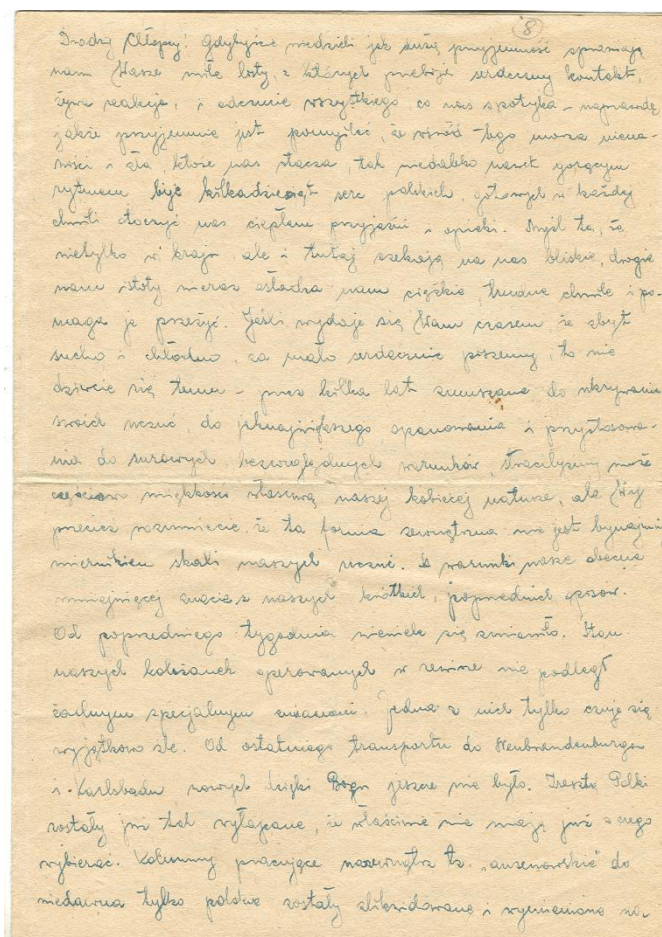 8
Drodzy Chłopcy! Gdybyście wiedzieli jak dużą przyjemność sprawiają
nam Wasze miłe listy, z których przebija serdeczny kontakt,
żywa reakcja, i odczucie wszystkiego co nas spotyka – naprawdę
jakże przyjemnie jest pomyśleć, że wśród tego morza niena-
wiści i zła które nas otacza, tak niedaleko nawet gorącym
rytmem bije kilkadziesiąt serc polskich, gotowych w każdej
chwili otoczyć nas ciepłem przyjaźni i opieki. Myśl ta, że
nietylko w kraju ale i tutaj czekają na nas bliskie, drogie
nam istoty nieraz osładza nam ciężkie, trudne chwile i po-
maga je przeżyć. Jeśli wydaje się Wam czasem, że zbyt
sucho i chłodno, za mało serdecznie piszemy, to nie
dziwcie się temu – przez kilka lat zmuszane do ukrywania
swoich uczuć, do jaknajwiększego opanowania i przystosowa-
nia do surowych, bezwzględnych warunków, straciłyśmy może
częściowo miękkość właściwą naszej kobiecej naturze, ale Wy
przecież rozumiecie, że ta forma zewnętrzna nie jest bynajmniej
miernikiem skali naszych uczuć. A warunki nasze obecne
mniejwięcej znacie z naszych krótkich, poprzednich opisów.
Od poprzedniego tygodnia niewiele się zmieniło. Stan
naszych koleżanek operowanych w rewirze nie podległ
żadnym specjalnym zmianom. Jedna z nich tylko czuje się
wyjątkowo źle. Od ostatniego transportu do Neubrandenburga
i Karlsbadu nowych dzięki Bogu jeszcze nie było. Zresztą Polki
zostały już tak wyłapane, że właściwie nie mają już z czego
wybierać. Kolumny pracujące nazewnątrz tz. "ausenowskie" do
niedawna tylko polskie zostały zlikwidowane i wymienione na